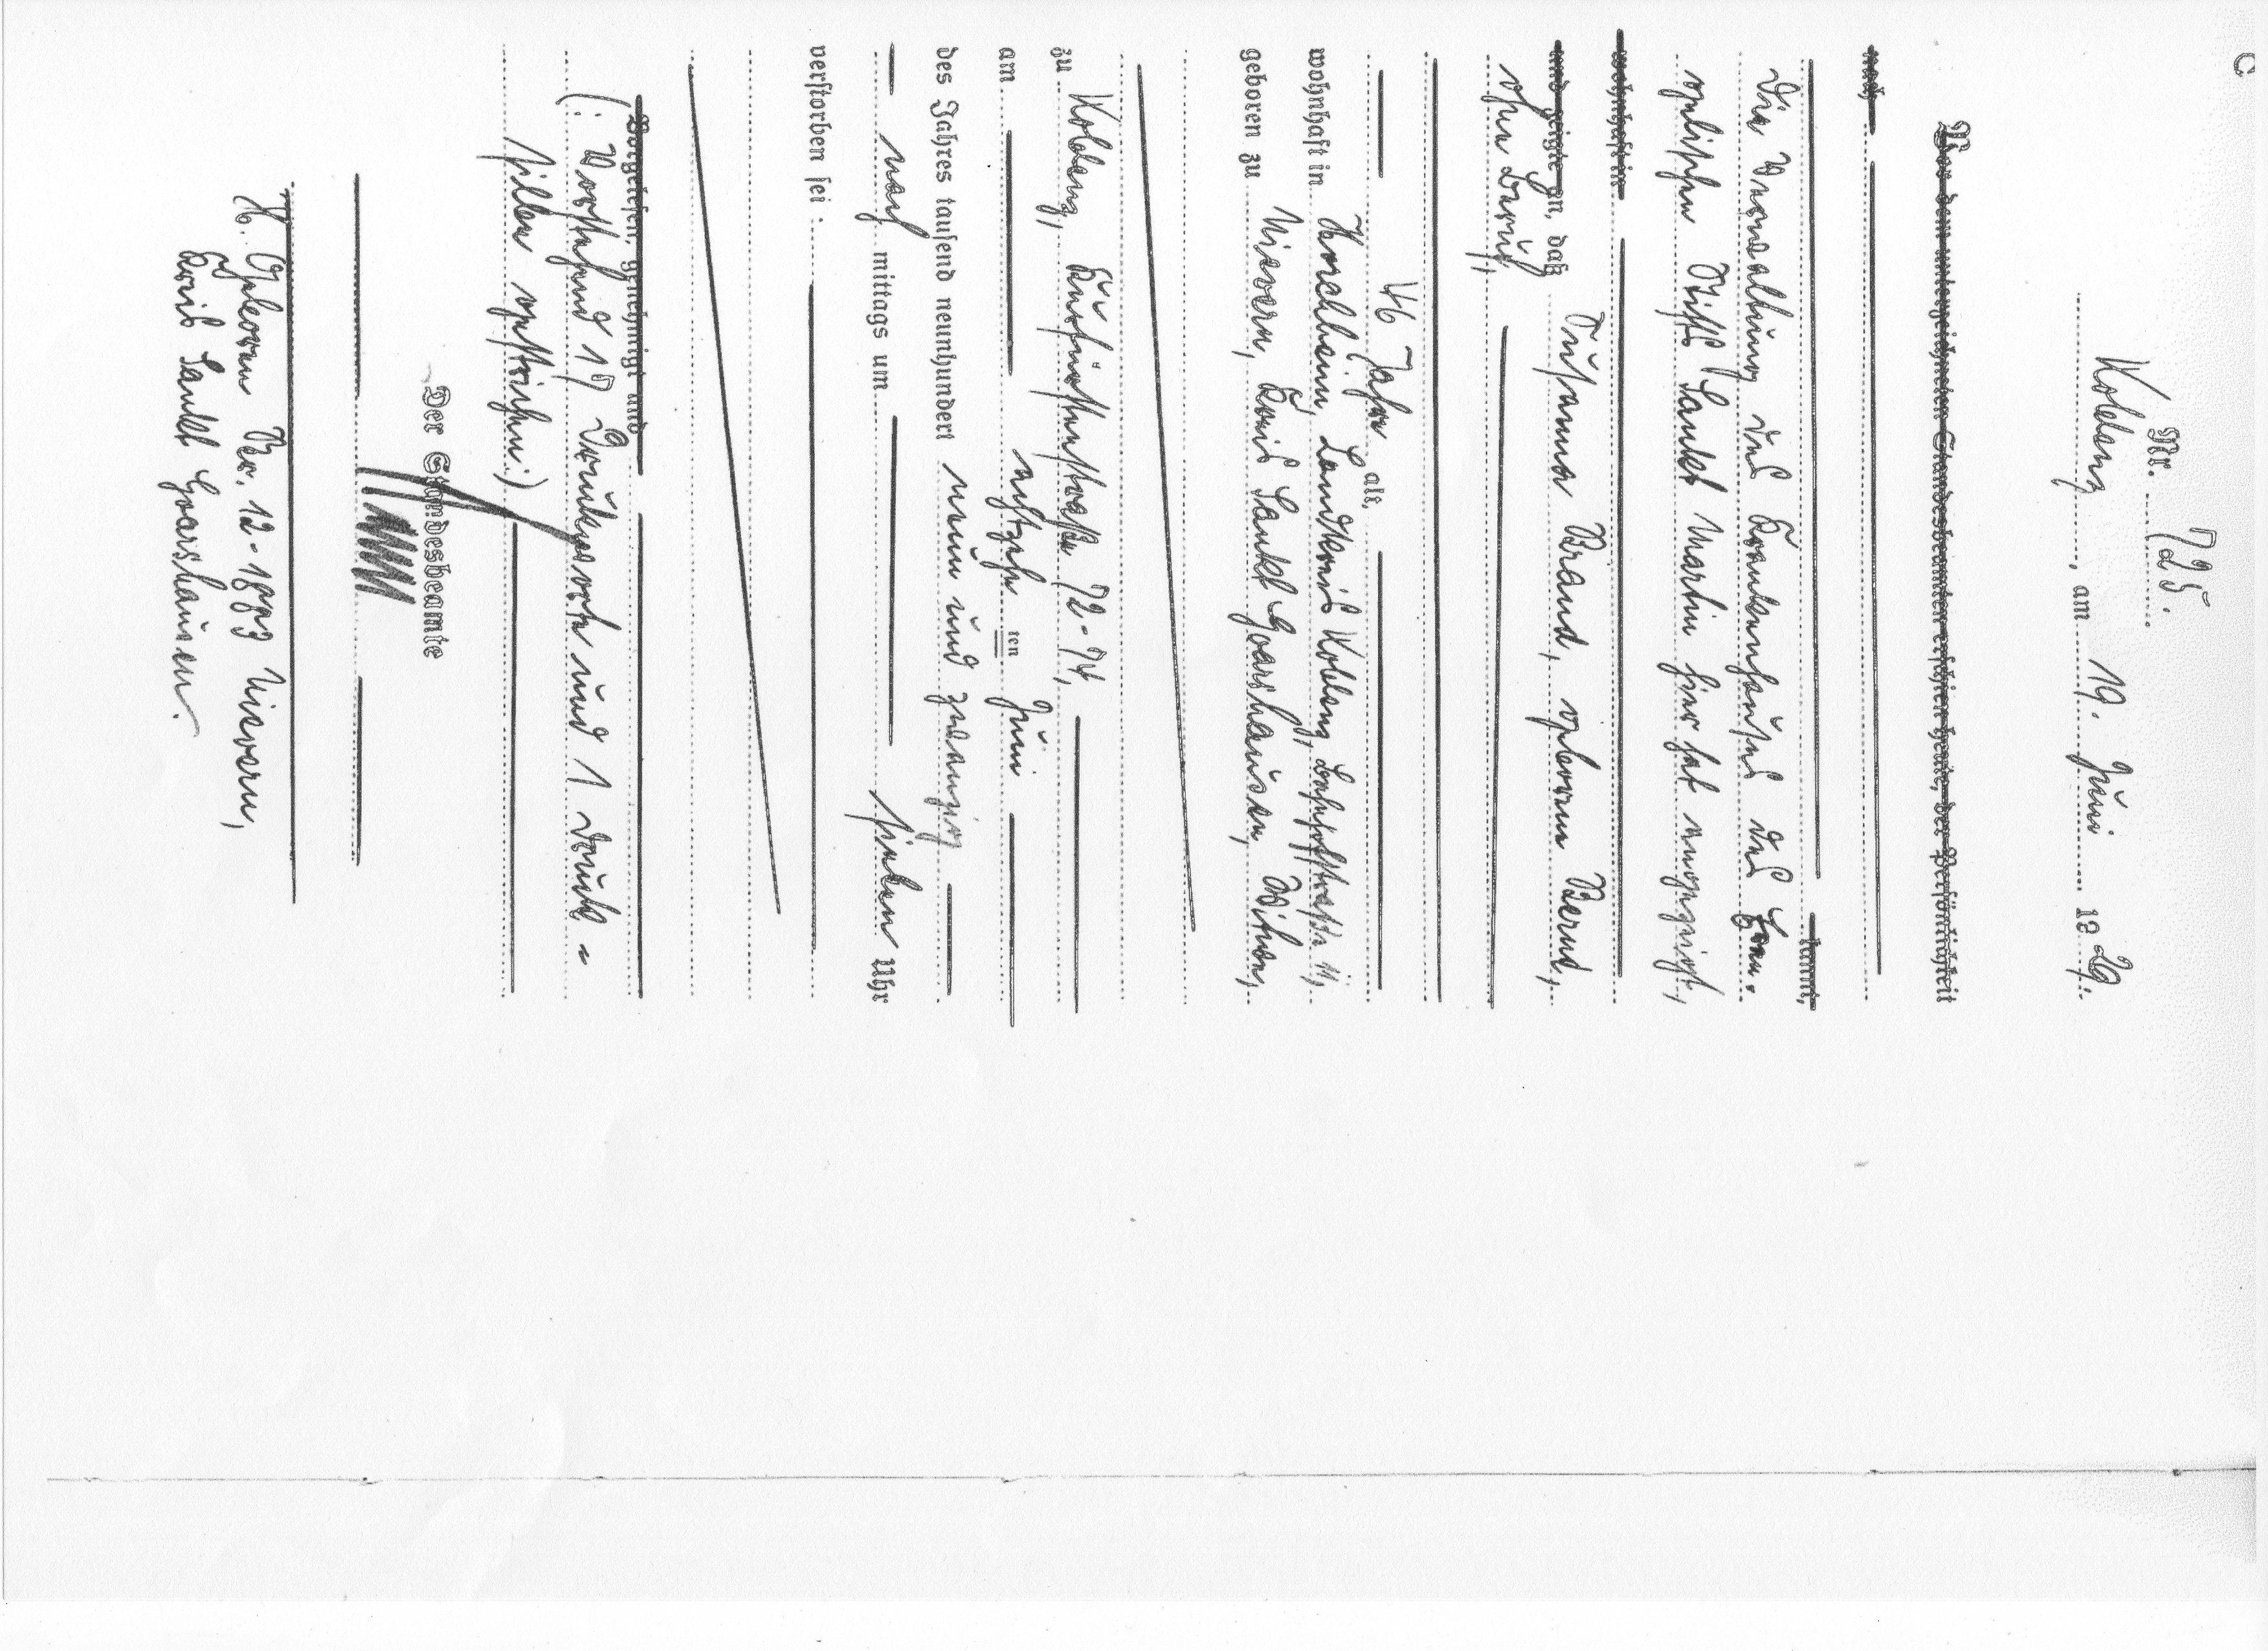 C
Nr. 725.
Koblenz, am 19. Juni 1929.
Vor dem unterzeichneten Standesbeamten erschien heute, der Persönlichkeit
nach
kannt,
Die Verwaltung des Krankenhauses des Evan-
gelischen Stift Sankt Martin hier hat angezeigt,
wohnhaft in
und zeigte an, daß Susanna Brand, geborene Bernd,
ohne Beruf,
46 Jahre alt,
wohnhaft in Horchheim, Landkreis Koblenz, Bahnhofstraße 11,
geboren zu Nievern, Kreis Sankt Goarshausen, Witwe,
zu Koblenz, Kurfürstenstraße 72-74,
am achtzehnten Juni
des Jahres tausend neunhundert neun und zwanzig
nach mittags um sieben Uhr
verstorben sei.
Vorgelesen, genehmigt und
(: Vorstehend 17 Druckworte und 1 Druck-
silbe gestrichen:)
Der Standesbeamte
H. Geboren Nr. 12-1883 Nievern,
Kreis Sankt Goarshausen.